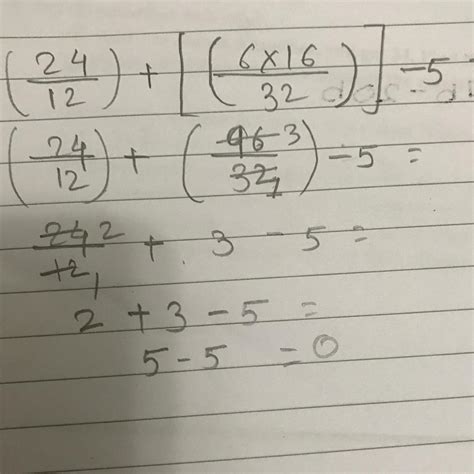 (24/12) + [(6×16/32)] -5
(24/12) + (96 3/32 1) -5 =
24 2/12 1 + 3 - 5 =
2 + 3 - 5 =
5 - 5 = 0